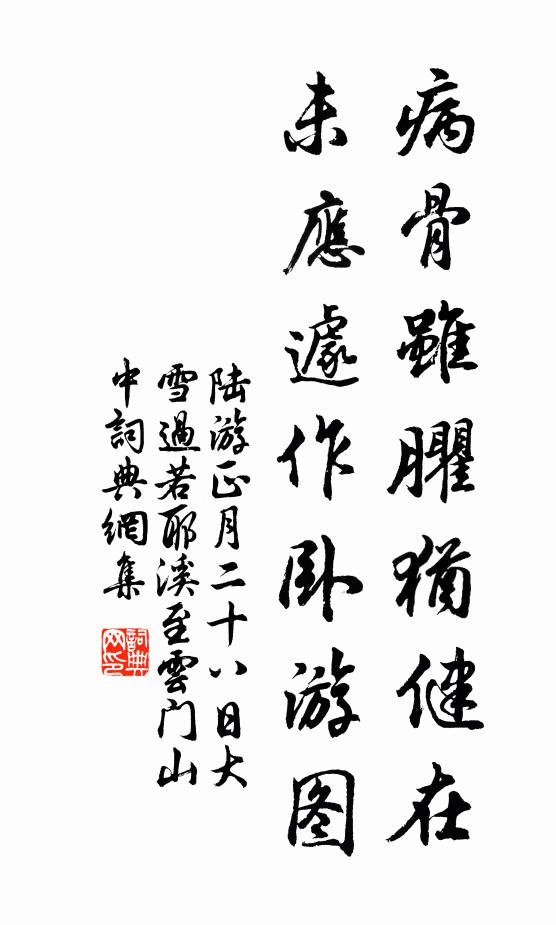 病骨雖臞猶健在
未應遽作卧游图
陆游正月二十八日大
雪過若耶溪至雲门山
中詞典網集
詞典网印